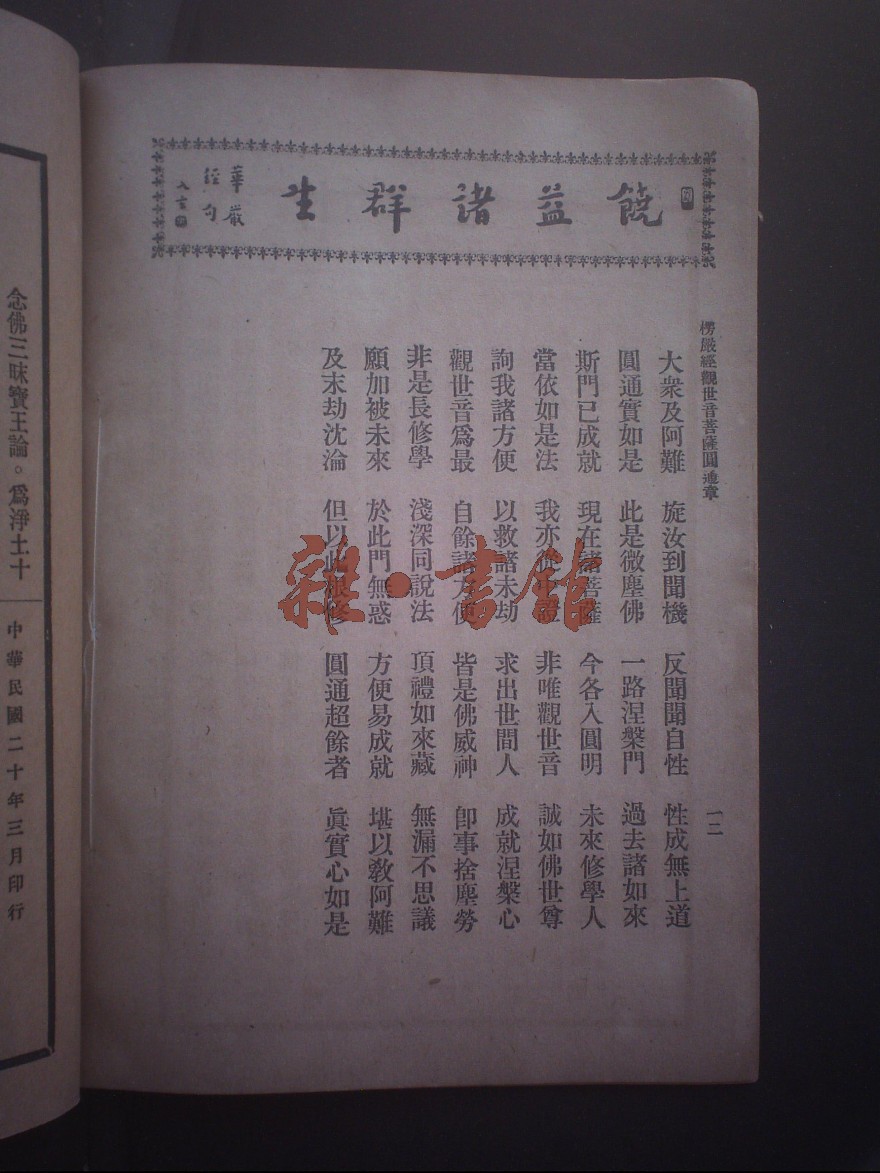 饒益諸群生
華嚴
經句
楞嚴經觀世音菩薩圓通章
一二
大衆及阿難 旋汝到聞機 反聞聞自性 性成無上道
圓通實如是 此是微塵佛 一路涅槃門 過去諸如來
斯門已成就 現在諸菩薩 今各入圓明 未來修學人
當依如是法 我亦從中證 非唯觀世音 誠如佛世尊
詢我諸方便 以救諸末劫 求出世間人 成就涅槃心
觀世音爲最 自餘諸方便 皆是佛威神 卽事捨塵勞
非是長修學 淺深同說法 頂禮如來藏 無漏不思議
願加被未來 於此門無惑 方便易成就 堪以敎阿難
及末劫沈淪 但以此根修 圓通超餘者 眞實心如是
念佛三昧寶王論。爲淨土十
中華民國二十年三月印行
雜·書館